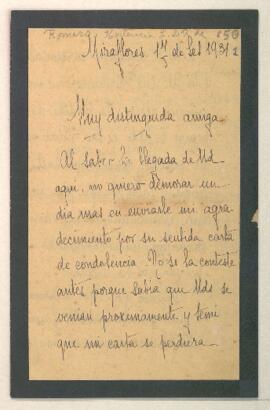 Miraflores 1º de Set 1931
Muy distinguida amiga
Al saber la llegada de Ud
aqui, no quiero demorar un
dia mas en enviarle mi agra-
decimiento por su sentida carta
de condolencia. No se la contesté
antes porque sabia que Uds se
venian proximamente y temi
que mi carta se perdiera